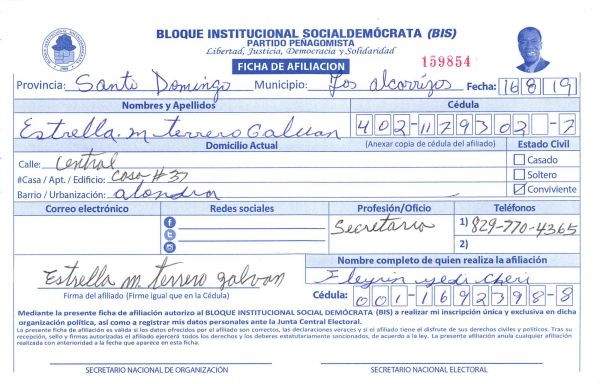 BLOQUE INSTITUCIONAL SOCIALDEMÓCRATA (BIS)
PARTIDO PEÑAGOMISTA
Libertad, Justicia, Democracia y Solidaridad
FICHA DE AFILIACION
159854
Provincia: Santo Domingo Municipio: Los alcarrizos Fecha: 16 8 19
Nombres y Apellidos Cédula
Estrella. m terrero Galvan 402-1179302-7
Domicilio Actual (Anexar copia de cédula del afiliado) Estado Civil
Calle: Central Casado
#Casa / Apt. / Edificio: Casa #37 Soltero
Barrio / Urbanización: alondra Conviviente
Correo electrónico Redes sociales Profesión/Oficio Teléfonos
Secretaria 1) 829-770-4365
2)
Nombre completo de quien realiza la afiliación
Estrella m. terrero galvan
Firma del afiliado (Firme igual que en la Cédula) Cédula: 001-1692398-8
Mediante la presente ficha de afiliación autorizo al BLOQUE INSTITUCIONAL SOCIAL DEMÓCRATA (BIS) a realizar mi inscripción única y exclusiva en dicha
organización política, así como a registrar mis datos personales ante la Junta Central Electoral.
La presente ficha de afiliación es válida si los datos ofrecidos por el afiliado son correctos, las declaraciones veraces y si el afiliado tiene el disfrute de sus derechos civiles y políticos. Tras su
recepción, sello y firmas autorizadas el afiliado ejercerá todos los derechos y los deberes estatutariamente sancionados, de acuerdo a la ley. La presente afiliación anula cualquier afiliación
realizada con anterioridad a la fecha que aparece en esta ficha.
SECRETARIO NACIONAL DE ORGANIZACIÓN SECRETARIO NACIONAL ELECTORAL